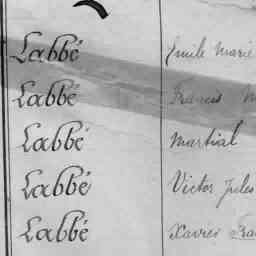 Labbé Emile Marie
Labbé Francis
Labbé Martial
Labbé Victor Jules
Labbé Xavier